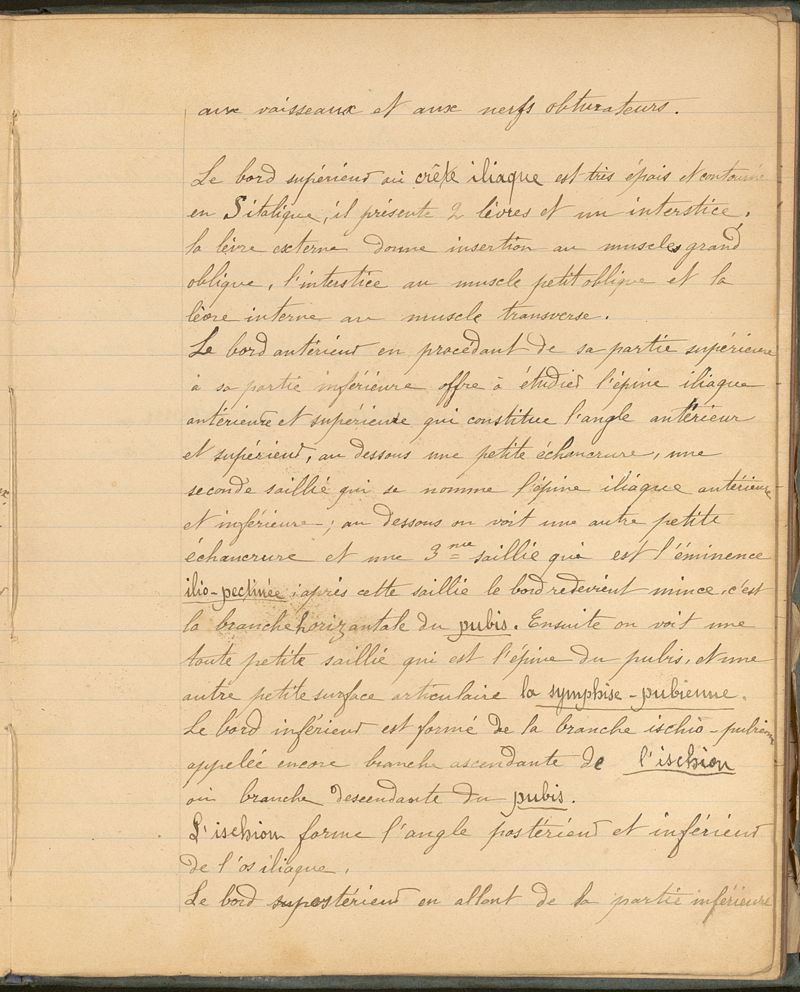 aux vaisseaux et aux nerfs obturateurs.
Le bord supérieur ou crête iliaque est très épais et contourné
en S italique, il présente 2 lèvres et un interstice.
la lèvre externe donne insertion au muscles grand
oblique, l'interstice au muscle petit oblique et la
lèvre interne au muscle transverse.
Le bord antérieur en procédant de sa partie supérieure
à sa partie inférieure offre à étudier l'épine iliaque
antérieure et supérieure qui constitue l'angle antérieur
et supérieur, au dessous une petite échancrure, une
seconde saillie qui se nomme l'épine iliaque antérieure
et inférieure; au dessous on voit une autre petite
échancrure et une 3me saillie qui est l'éminence
ilio-pectinée; après cette saillie le bord redevient mince, c'est
la branche horizantale du pubis. Ensuite on voit une
toute petite saillie qui est l'épine du pubis, et une
autre petite surface articulaire la symphise-pubienne.
Le bord inférieur est formé de la branche ischio-pubienne
appelée encore branche ascendante de l'ischion
ou branche descendante du pubis.
L'ischion forme l'angle postérieur et inférieur
de l'os iliaque.
Le bord postérieur en allant de la partie inférieure